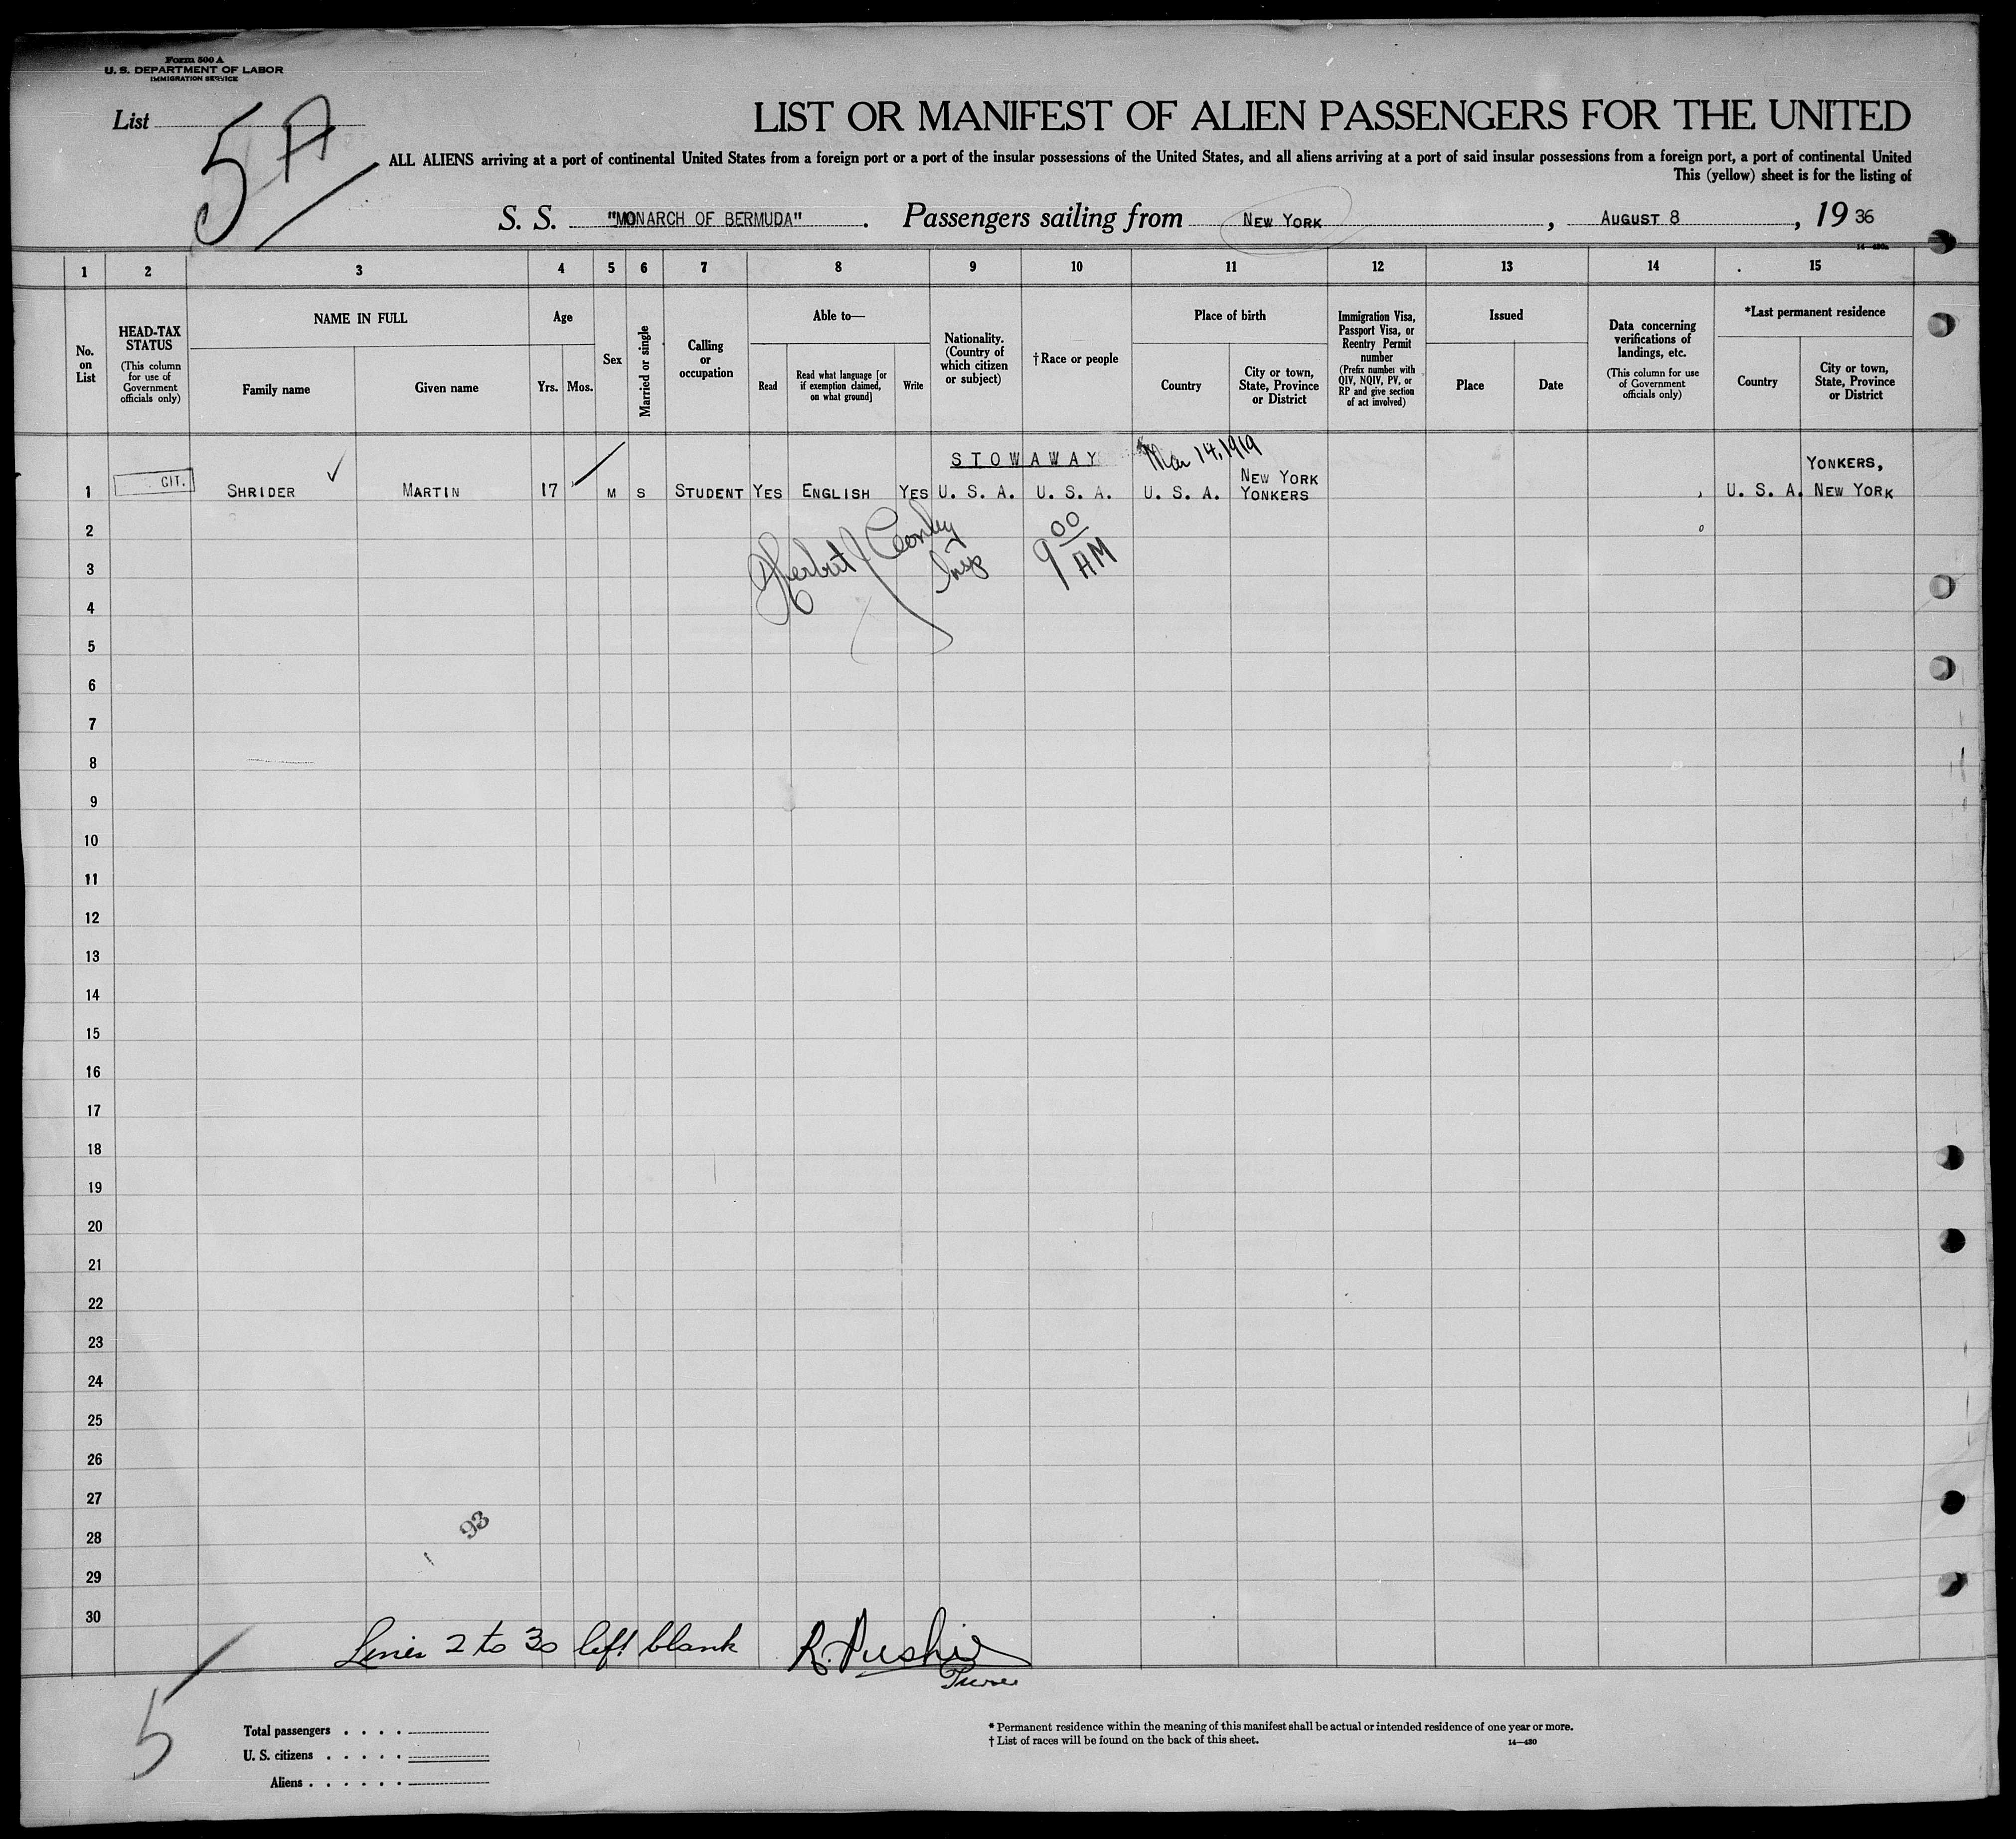 Form 500 A
U. S. DEPARTMENT OF LABOR
IMMIGRATION SERVICE
List 5A
LIST OR MANIFEST OF ALIEN PASSENGERS FOR THE UNITED
ALL ALIENS arriving at a port of continental United States from a foreign port or a port of the insular possessions of the United States, and all aliens arriving at a port of said insular possessions from a foreign port, a port of continental United
This (yellow) sheet is for the listing of
S. S. "MONARCH OF BERMUDA". Passengers sailing from NEW YORK, AUGUST 8, 19 36
14—430a
1 2 3 4 5 6 7 8 9 10 11 12 13 14 15
No. on List
HEAD-TAX STATUS
(This column for use of Government officials only)
NAME IN FULL
Family name
Given name
Age
Yrs. Mos.
Sex
Married or single
Calling or occupation
Able to—
Read
Read what language [or if exemption claimed, on what ground]
Write
Nationality. (Country of which citizen or subject)
†Race or people
Place of birth
Country
City or town, State, Province or District
Immigration Visa, Passport Visa, or Reentry Permit number
(Prefix number with QIV, NQIV, PV, or RP and give section of act involved)
Issued
Place
Date
Data concerning verifications of landings, etc.
(This column for use of Government officials only)
*Last permanent residence
Country
City or town, State, Province or District
STOWAWAY Mar 14, 1919
NEW YORK YONKERS,
1 CIT. SHRIDER MARTIN 17 M S STUDENT YES ENGLISH YES U. S. A. U. S. A. U. S. A. YONKERS U. S. A. NEW YORK
2
Herbert J Conley
Insp
9 00 AM
3
4
5
6
7
8
9
10
11
12
13
14
15
16
17
18
19
20
21
22
23
24
25
26
27
93
28
29
30
Lines 2 to 30 left blank
Purser
5
Total passengers
U. S. citizens
Aliens
* Permanent residence within the meaning of this manifest shall be actual or intended residence of one year or more.
† List of races will be found on the back of this sheet.
14—430